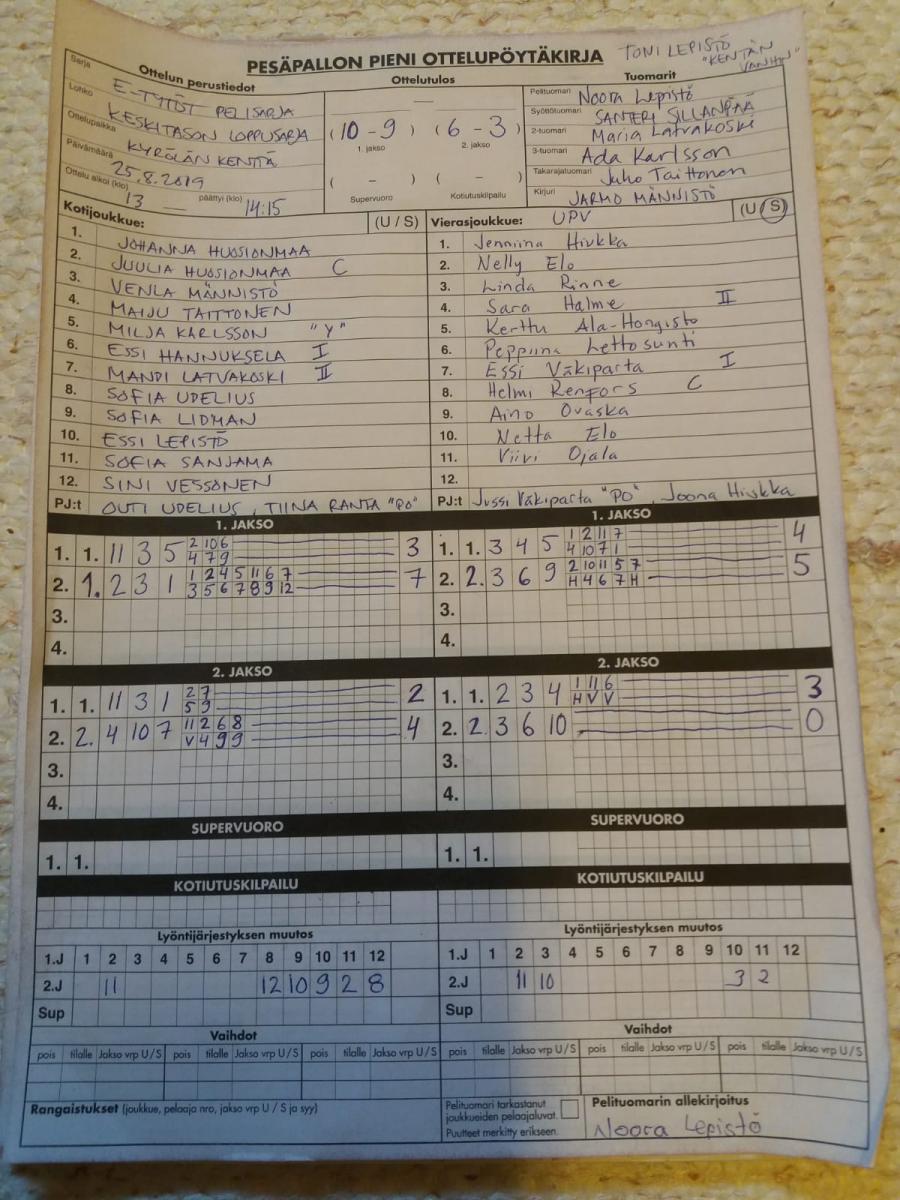 PESÄPALLON PIENI OTTELUPÖYTÄKIRJA
TONI LEPISTÖ
"KENTÄN VANHIN"
Ottelun perustiedot
Sarja E-TYTÖT PELISARJA
Lohko KESKITASON LOPPUSARJA
Ottelupaikka KYRÖLÄN KENTTÄ
Päivämäärä 25.8.2019
Ottelu alkoi (klo) 13 — päättyi (klo) 14:15
Ottelutulos
(10 - 9) (6 - 3)
1. jakso 2. jakso
( - ) ( - )
Supervuoro Kotiutuskilpailu
Tuomarit
Pelituomari Noora Lepistö
Syöttötuomari SANTERI SILLANPÄÄ
2-tuomari Maria Latvakoski
3-tuomari Ada Karlsson
Takarajatuomari Juho Taittonen
Kirjuri JARMO MÄNNISTÖ
Kotijoukkue: (U / S)
1. JOHANNA HUOSIONMAA
2. JUULIA HUOSIONMAA C
3. VENLA MÄNNISTÖ
4. MAIJU TAITTONEN
5. MILJA KARLSSON "Y"
6. ESSI HANNUKSELA I
7. MANDI LATVAKOSKI II
8. SOFIA UDELIUS
9. SOFIA LIDMAN
10. ESSI LEPISTÖ
11. SOFIA SANJAMA
12. SINI VESSONEN
PJ:t OUTI UDELIUS, TIINA RANTA "PO"
Vierasjoukkue: UPV (U / S)
1. Jenniina Hiukka
2. Nelly Elo
3. Linda Rinne
4. Sara Halme II
5. Kerttu Ala-Hongisto
6. Peppiina Lettosunti
7. Essi Väkiparta I
8. Helmi Renfors C
9. Aino Ovaska
10. Netta Elo
11. Viivi Ojala
12.
PJ:t Jussi Väkiparta "PO", Joona Hiukka
1. JAKSO
1. 1. 11 3 5 2 10 6 3
4 7 9
2. 1. 2 3 1 1 2 4 5 11 6 7 7
3 5 6 7 8 9 12
3.
4.
1. JAKSO
1. 1. 3 4 5 1 2 11 7 4
4 10 7 1
2. 2. 3 6 9 2 10 11 5 7 5
H 4 6 7 H
3.
4.
2. JAKSO
1. 1. 11 3 1 2 7 2
5 9
2. 2. 4 10 7 11 2 6 8 4
V 4 9 9
3.
4.
2. JAKSO
1. 1. 2 3 4 1 11 6 3
H V V
2. 2. 3 6 10 0
3.
4.
SUPERVUORO
1. 1.
SUPERVUORO
1. 1.
KOTIUTUSKILPAILU
KOTIUTUSKILPAILU
Lyöntijärjestyksen muutos
1.J 1 2 3 4 5 6 7 8 9 10 11 12
2.J 11 12 10 9 2 8
Sup
Lyöntijärjestyksen muutos
1.J 1 2 3 4 5 6 7 8 9 10 11 12
2.J 11 10 3 2
Sup
Vaihdot
pois tilalle Jakso vrp U / S pois tilalle Jakso vrp U / S pois tilalle Jakso vrp U / S
Vaihdot
pois tilalle Jakso vrp U / S pois tilalle Jakso vrp U / S pois tilalle Jakso vrp U / S
Rangaistukset (joukkue, pelaaja nro, jakso vrp U / S ja syy)
Pelituomari tarkastanut
joukkueiden pelaajaluvat.
Puutteet merkitty erikseen.
Pelituomarin allekirjoitus
Noora Lepistö